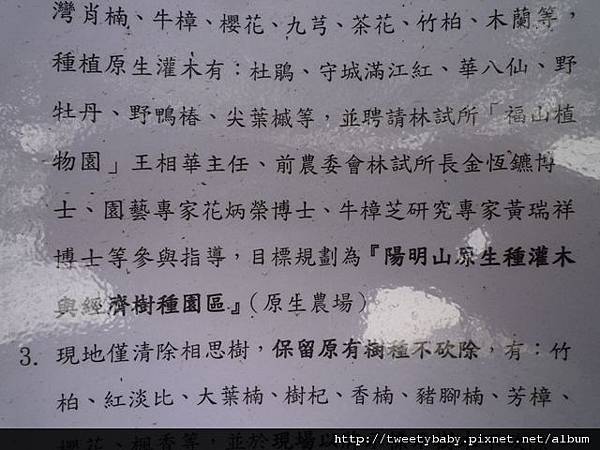 灣肖楠、牛樟、櫻花、九芎、茶花、竹柏、木蘭等，
種植原生灌木有：杜鵑、守城滿江紅、華八仙、野
牡丹、野鴨椿、尖葉槭等，並聘請林試所「福山植
物園」王相華主任、前農委會林試所長金恆鑣博
士、園藝專家花炳榮博士、牛樟芝研究專家黃瑞祥
博士等參與指導，目標規劃為『陽明山原生種灌木
與經濟樹種園區』（原生農場）
3. 現地僅清除相思樹，保留原有樹種不砍除，有：竹
柏、紅淡比、大葉楠、樹杞、香楠、豬腳楠、芳樟、
櫻花、楓香等，並於現場以
http://tweetybaby.pixnet.net/album